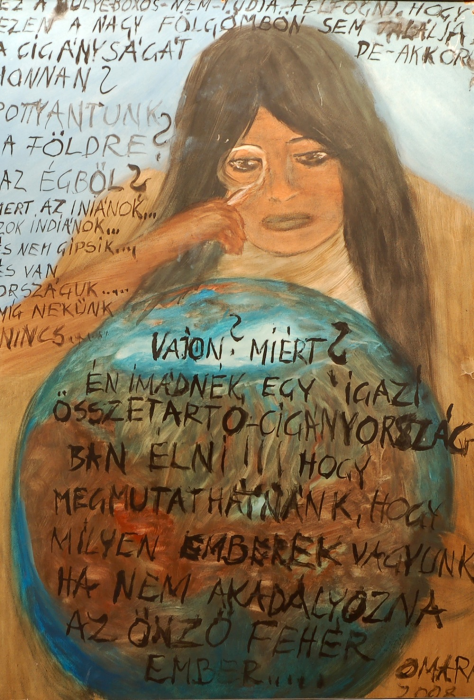 EZ A HÜLYE BOXOS-NEM-TUDJA FELFOGNI, HOGY
EZEN A NAGY FÖLGÖMBÖN SEM TALÁLJA
A CIGÁNYSÁGAT DE-AKKOR
HONNAN?
POTTYANTUNK
A FÖLDRE?
AZ ÉGBÖL?
MERT. AZ INIÁNOK...
AZOK INDIÁNOK...
ÉS NEM GIPSIK....
ÉS VAN
ORSZÁGUK.....
MIG NEKÜNK
NINCS......
VAJON? MIÉRT?
ÉN IMÁDNÉK, EGY IGAZI
ÖSSZETARTO-CIGÁNYORSZÁG-
BAN ÉLNI!!! HOGY
MEGMUTATHATNÁNK, HOGY
MILYEN EMBEREK VAGYUNK
HA NEM AKADÁLYOZNA
AZ ÖNZÖ FEHÉR
EMBER.....
OMARA
2008